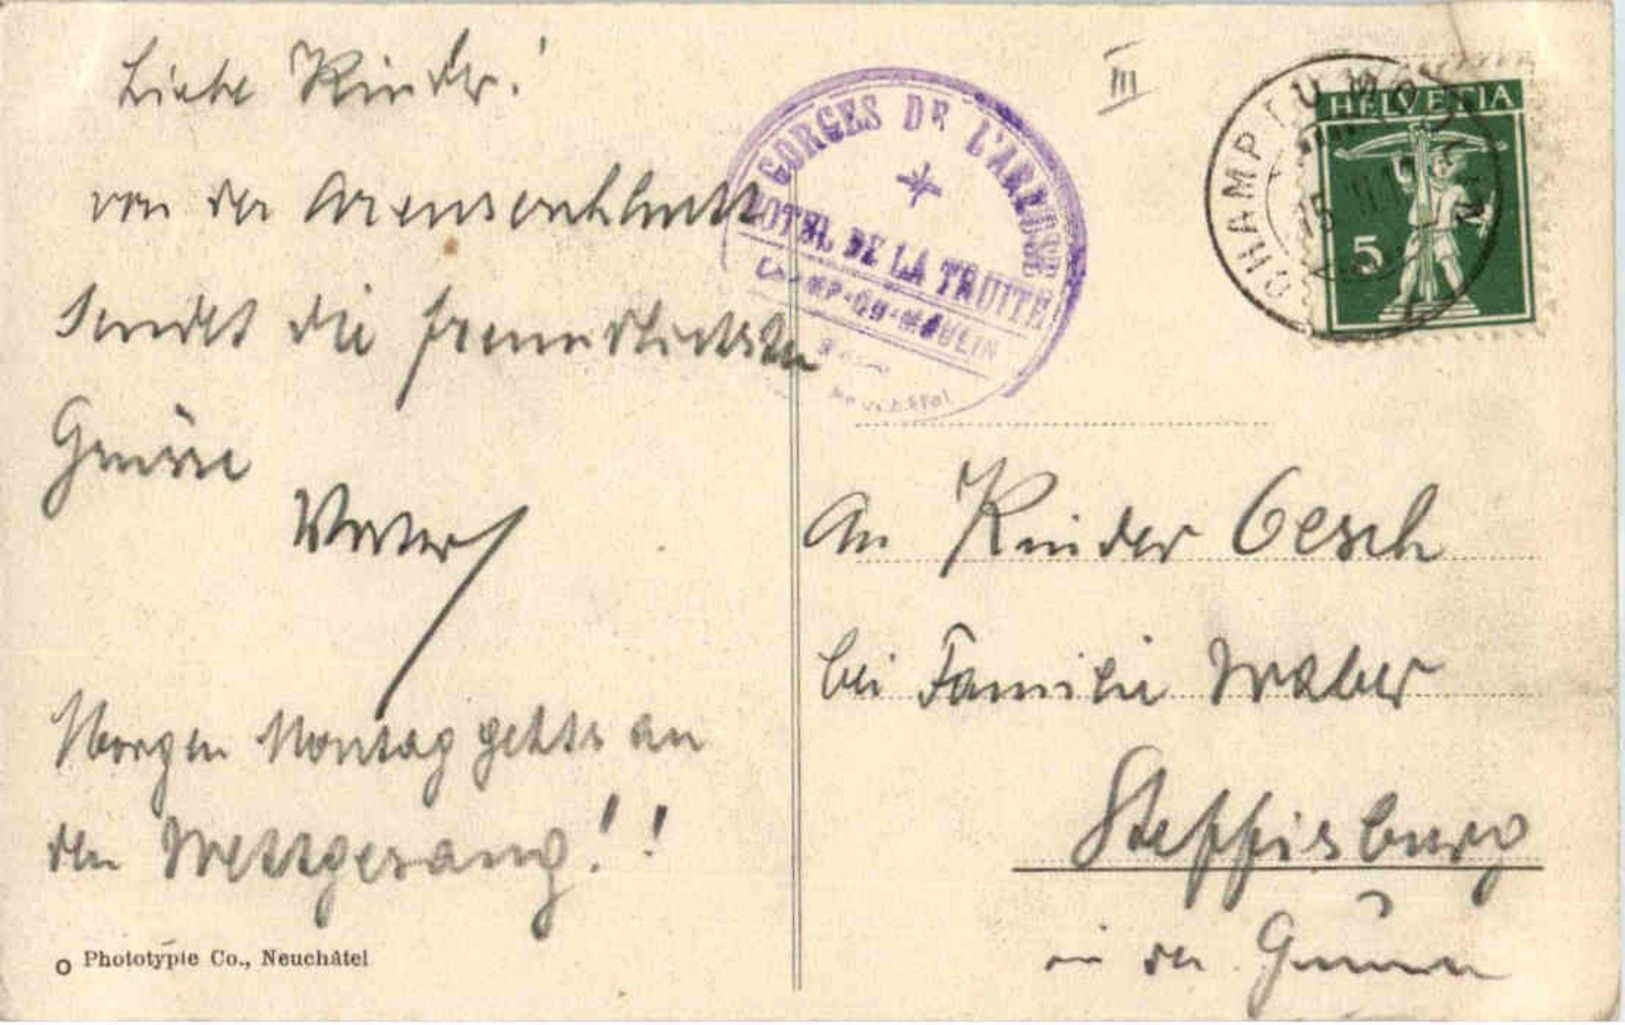 Liebe Kinder!
von der Areusenschlucht
sendet die freundlichsten
Grüsse
Vater
Morgen Montag gehts an
den Wettgesang!!
Phototypie Co., Neuchâtel
III
GORGES DE L'AREUSE
HOTEL DE LA TRUITE
CHAMP-DU-MOULIN
Neuchâtel
CHAMP DU MOULIN
HELVETIA
5
An Kinder Oesch
bei Familie Waber
Steffisburg
in der